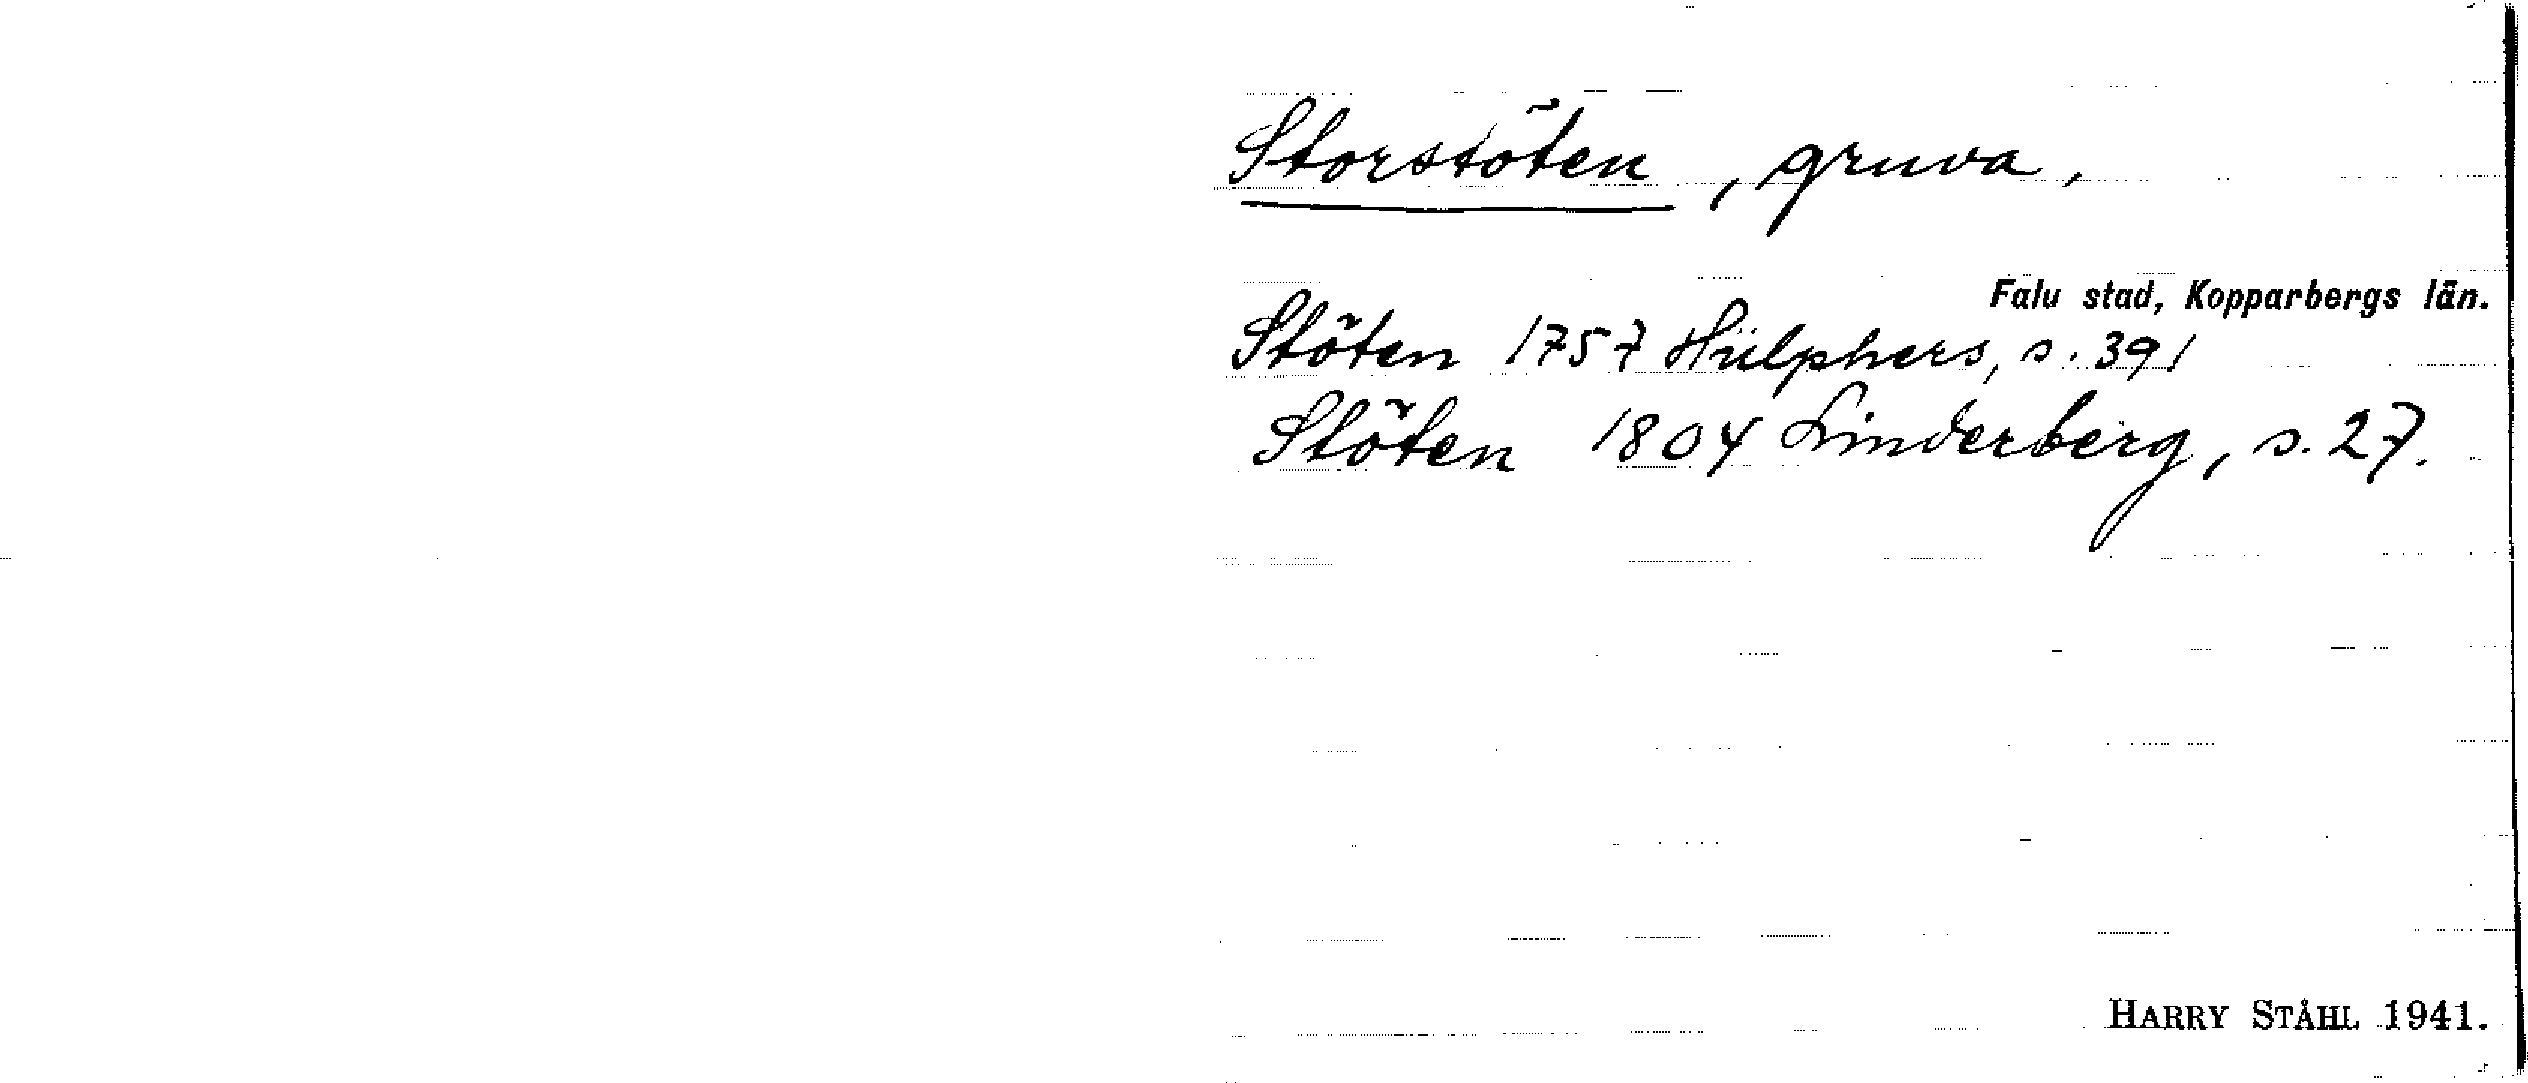 Storstöten, gruva,
Falu stad, Kopparbergs län.
Stöten 1757 Hülphers, s. 391
Stöten 1804 Linderberg, s. 27.
HARRY STÅHL 1941.